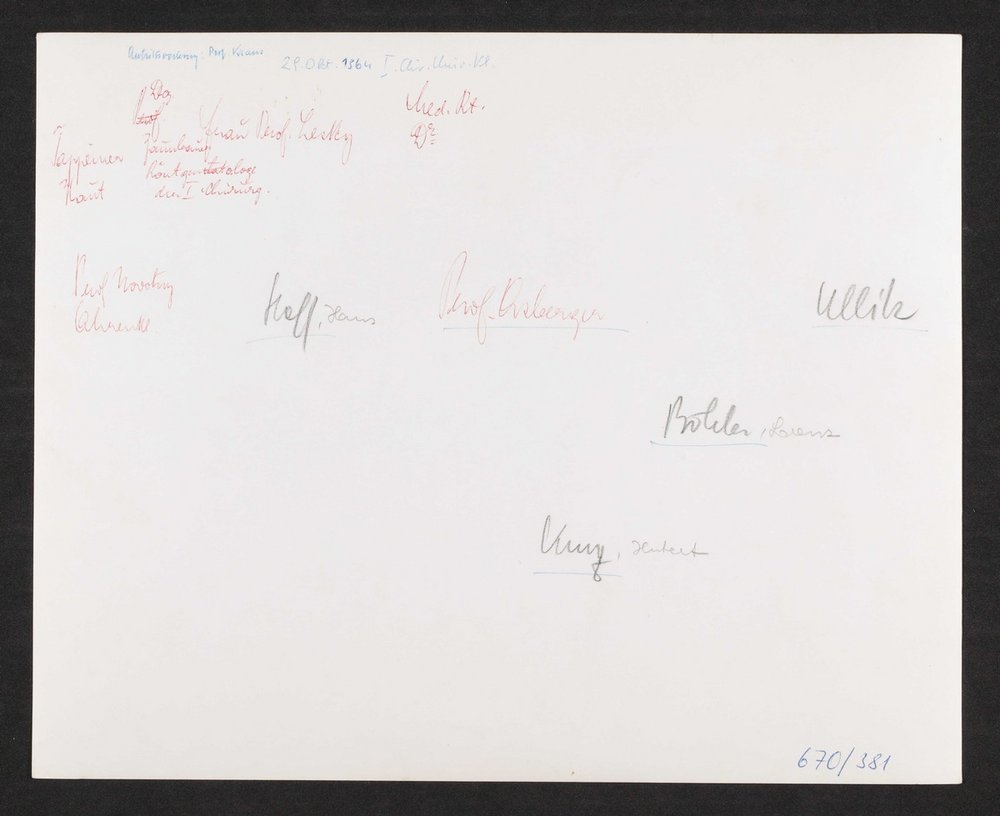 Antrittsvorlesung: Prof. Kraus
29. Okt. 1964 I. Chir. Univ. Kl.
Doz
Prof
Zaunbauer
Röntgenologe
der I. Chirurg.
Frau Prof. Lesky
Med. Rt.
Dr
Tappeiner
Haut
Prof Novotny
Hoff, Hans
Prof.
Ullik
Böhler, Lorenz
Kunz, Hubert
670/381